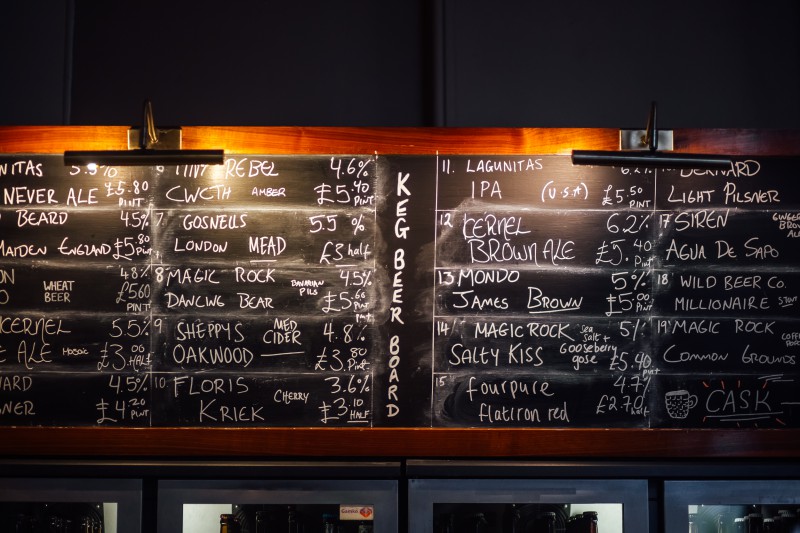 NITAS
NEVER ALE £5.80
PINT
BEARD 4.5%
MAIDEN ENGLAND £5.80
PINT
4.8%
WHEAT
BEER
£5.60
PINT
KERNEL 5.5%
ALE MOSAIC £3.00
HALF
4.5%
£4.20
PINT
TINY REBEL 4.6%
CWCTH AMBER £5.40
PINT
7 GOSNELLS 5.5%
LONDON MEAD £3 half
8 MAGIC ROCK BAVARIAN PILS 4.5%
DANCING BEAR
PINT
9 SHEPPYS MED CIDER 4.8%
OAKWOOD £3.80
PINT
10 FLORIS CHERRY 3.6%
KRIEK £3.10
HALF
KEG BEER BOARD
11. LAGUNITAS 6.2%
IPA (USA) £5.50
PINT
12 KERNEL 6.2%
BROWN ALE £5.40
PINT
13 MONDO 5%
JAMES BROWN £5.00
PINT
14 MAGIC ROCK sea salt + Gooseberry gose 5%
SALTY KISS £5.40
pint
15 fourpure 4.7%
flatiron red £2.70 half
BERNARD
LIGHT PILSNER
17 SIREN GINGER
BROWN
AGUA DE SAPO
18 WILD BEER CO.
MILLIONAIRE STOUT
19 MAGIC ROCK
COMMON GROUNDS
CASK